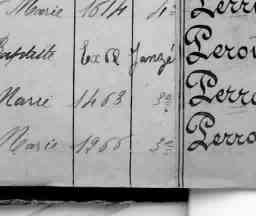 Marie 1614 4º Perro
Baptiste Ex R Janzé Perou
Marie 1463 3º Perro
Marie 1266 3º Perro